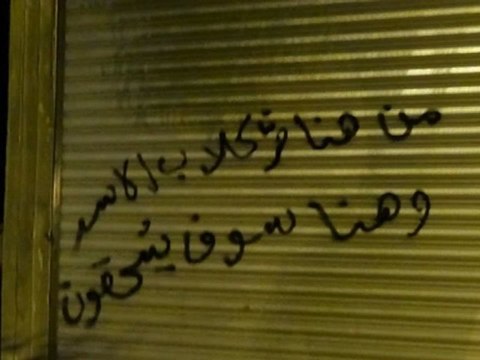 من هنا مر كلاب الاسد
وهنا سوف يسحقون